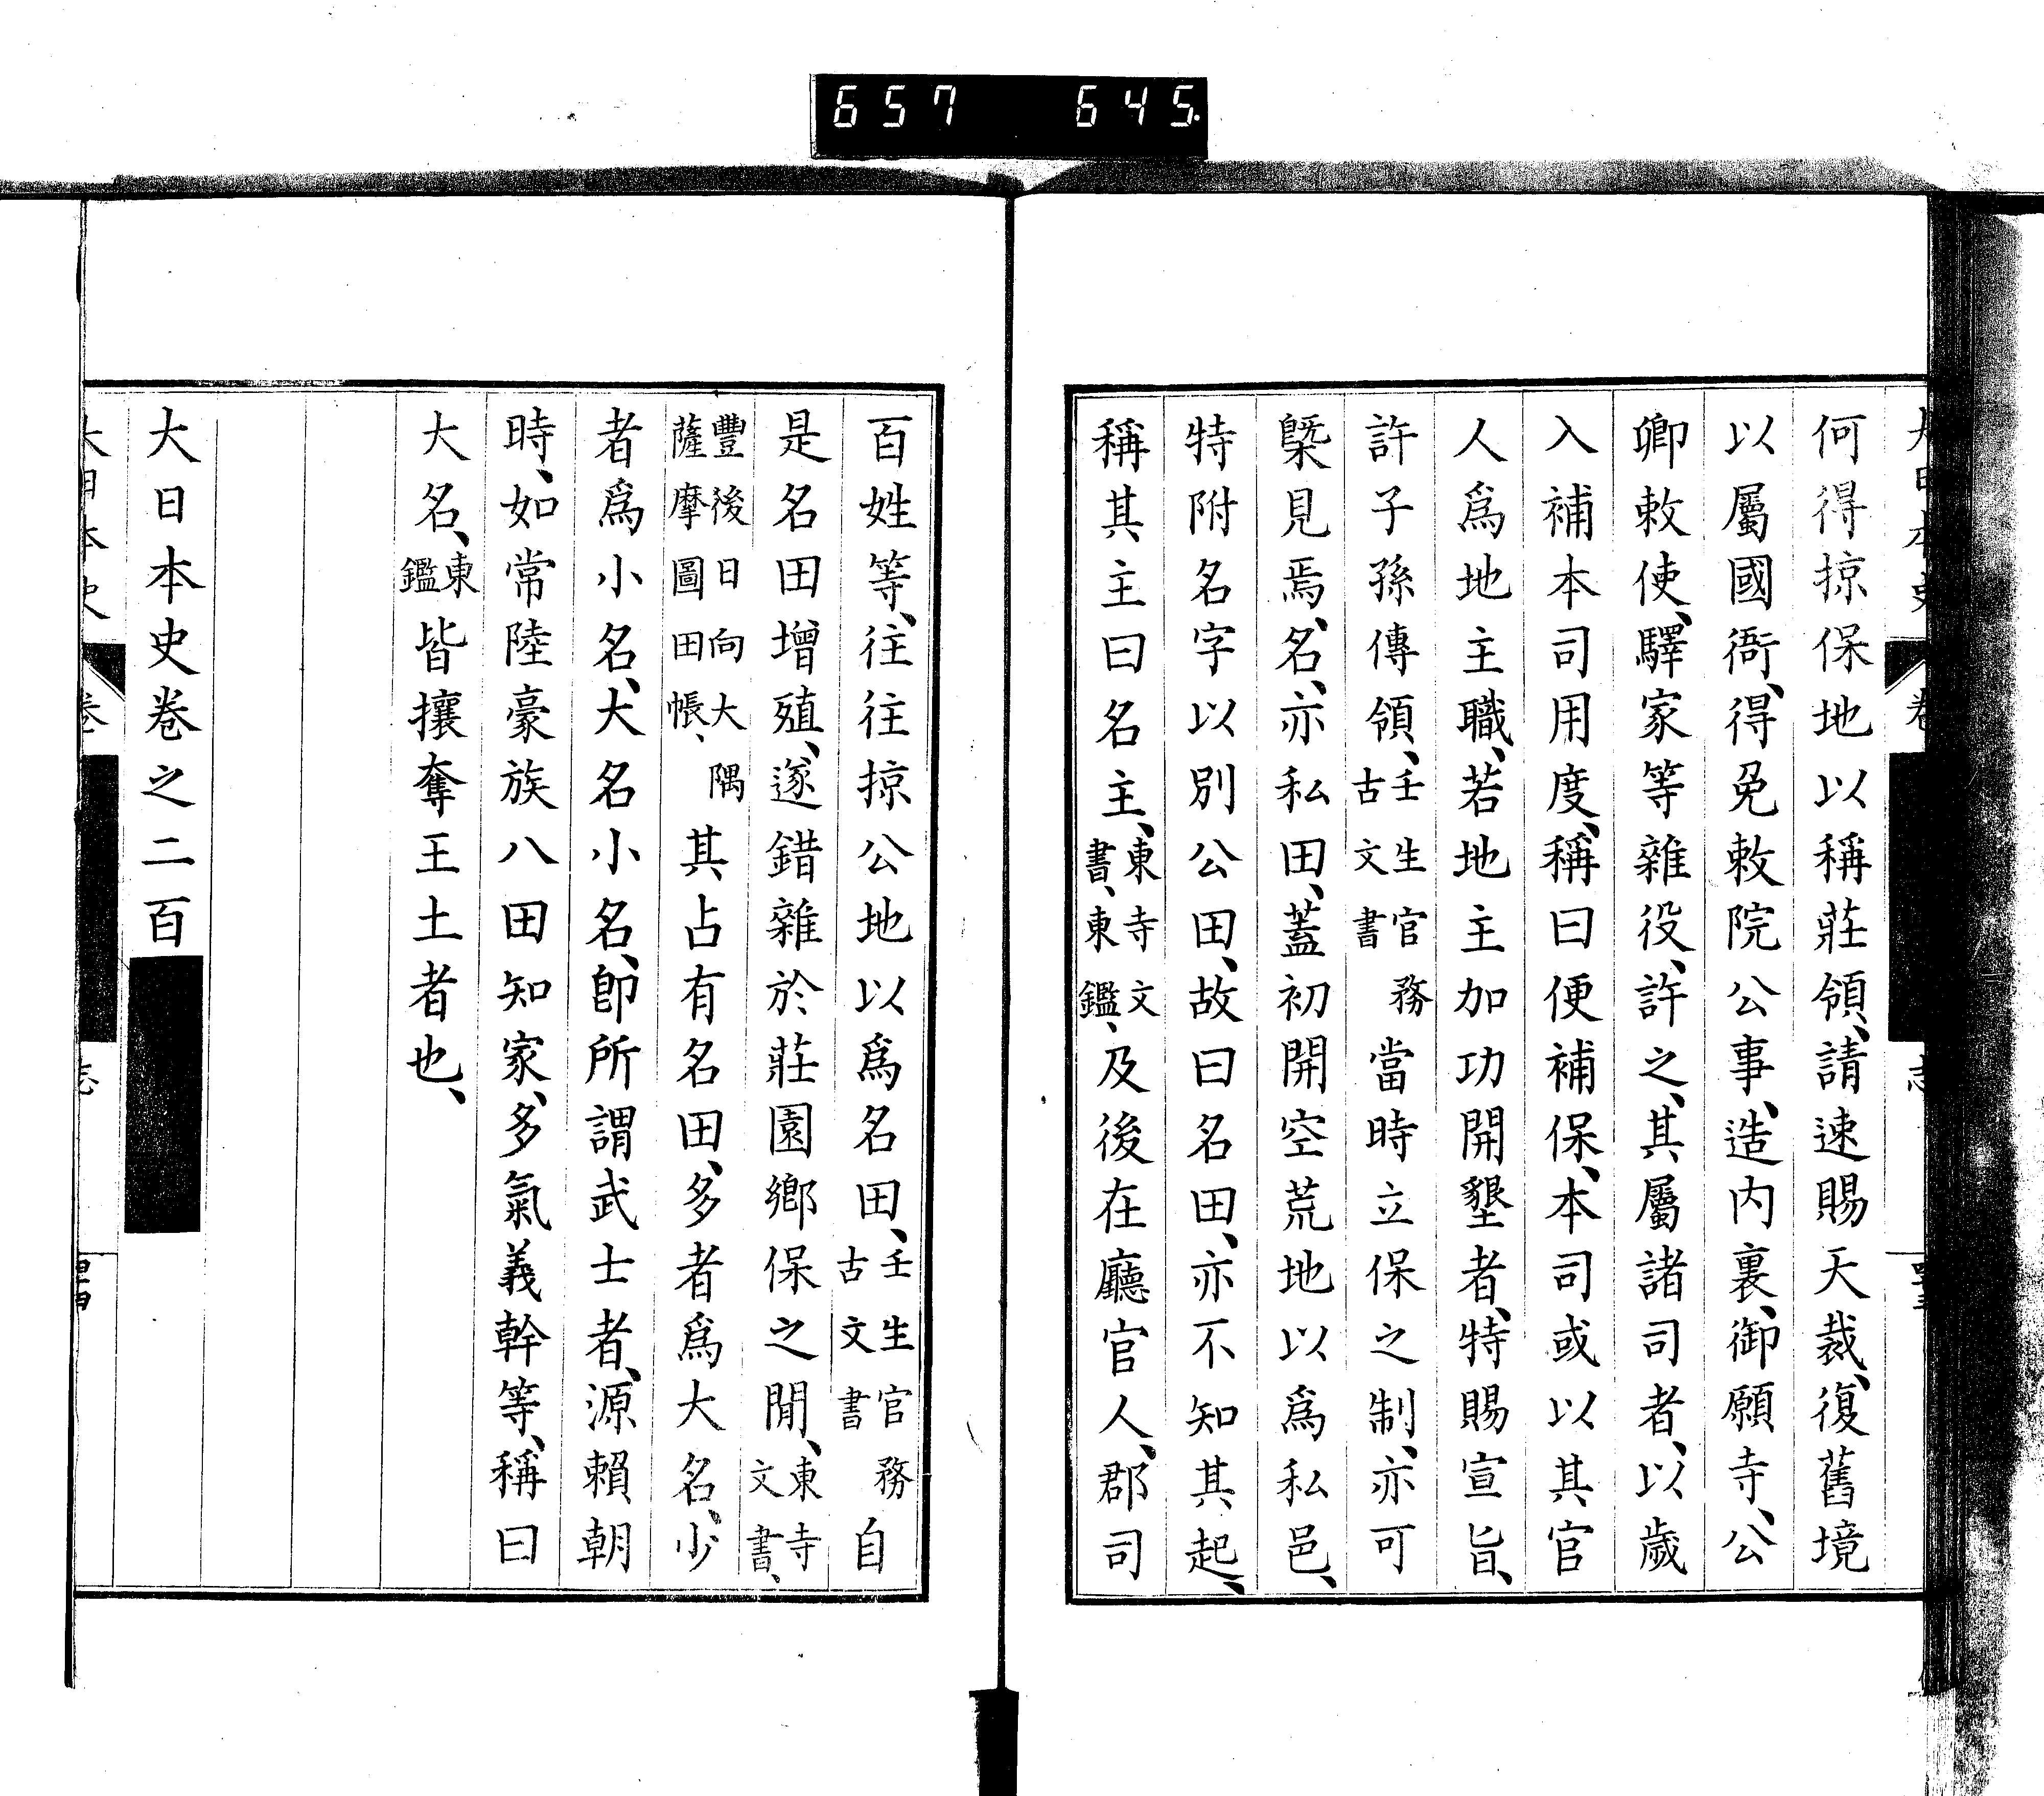 657 645
何得掠保地以稱莊領、請速賜天裁、復舊境
以屬國衙、得免敕院公事、造内裏、御願寺、公
卿敕使、驛家等雜役、許之、其屬諸司者、以歲
入補本司用度、稱曰便補保、本司或以其官
人爲地主職、若地主加功開墾者、特賜宣旨、
許子孫傳領、壬生官務古文書當時立保之制、亦可
槩見焉、名、亦私田、蓋初開空荒地以爲私邑、
特附名字以別公田、故曰名田、亦不知其起、
稱其主曰名主、東寺文書、東鑑、及後在廳官人、郡司
百姓等、往往掠公地以爲名田、壬生官務古文書自
是名田增殖、遂錯雜於莊園鄉保之閒、東寺文書、
豐後日向大隅薩摩圖田帳、其占有名田、多者爲大名、少
者爲小名、大名小名、卽所謂武士者、源賴朝
時、如常陸豪族八田知家、多氣義幹等、稱曰
大名、東鑑皆攘奪王土者也、
大日本史卷之二百
大日本史 卷 志